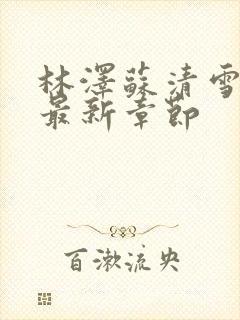 林澤蘇清雪
最新章節
百漱流央